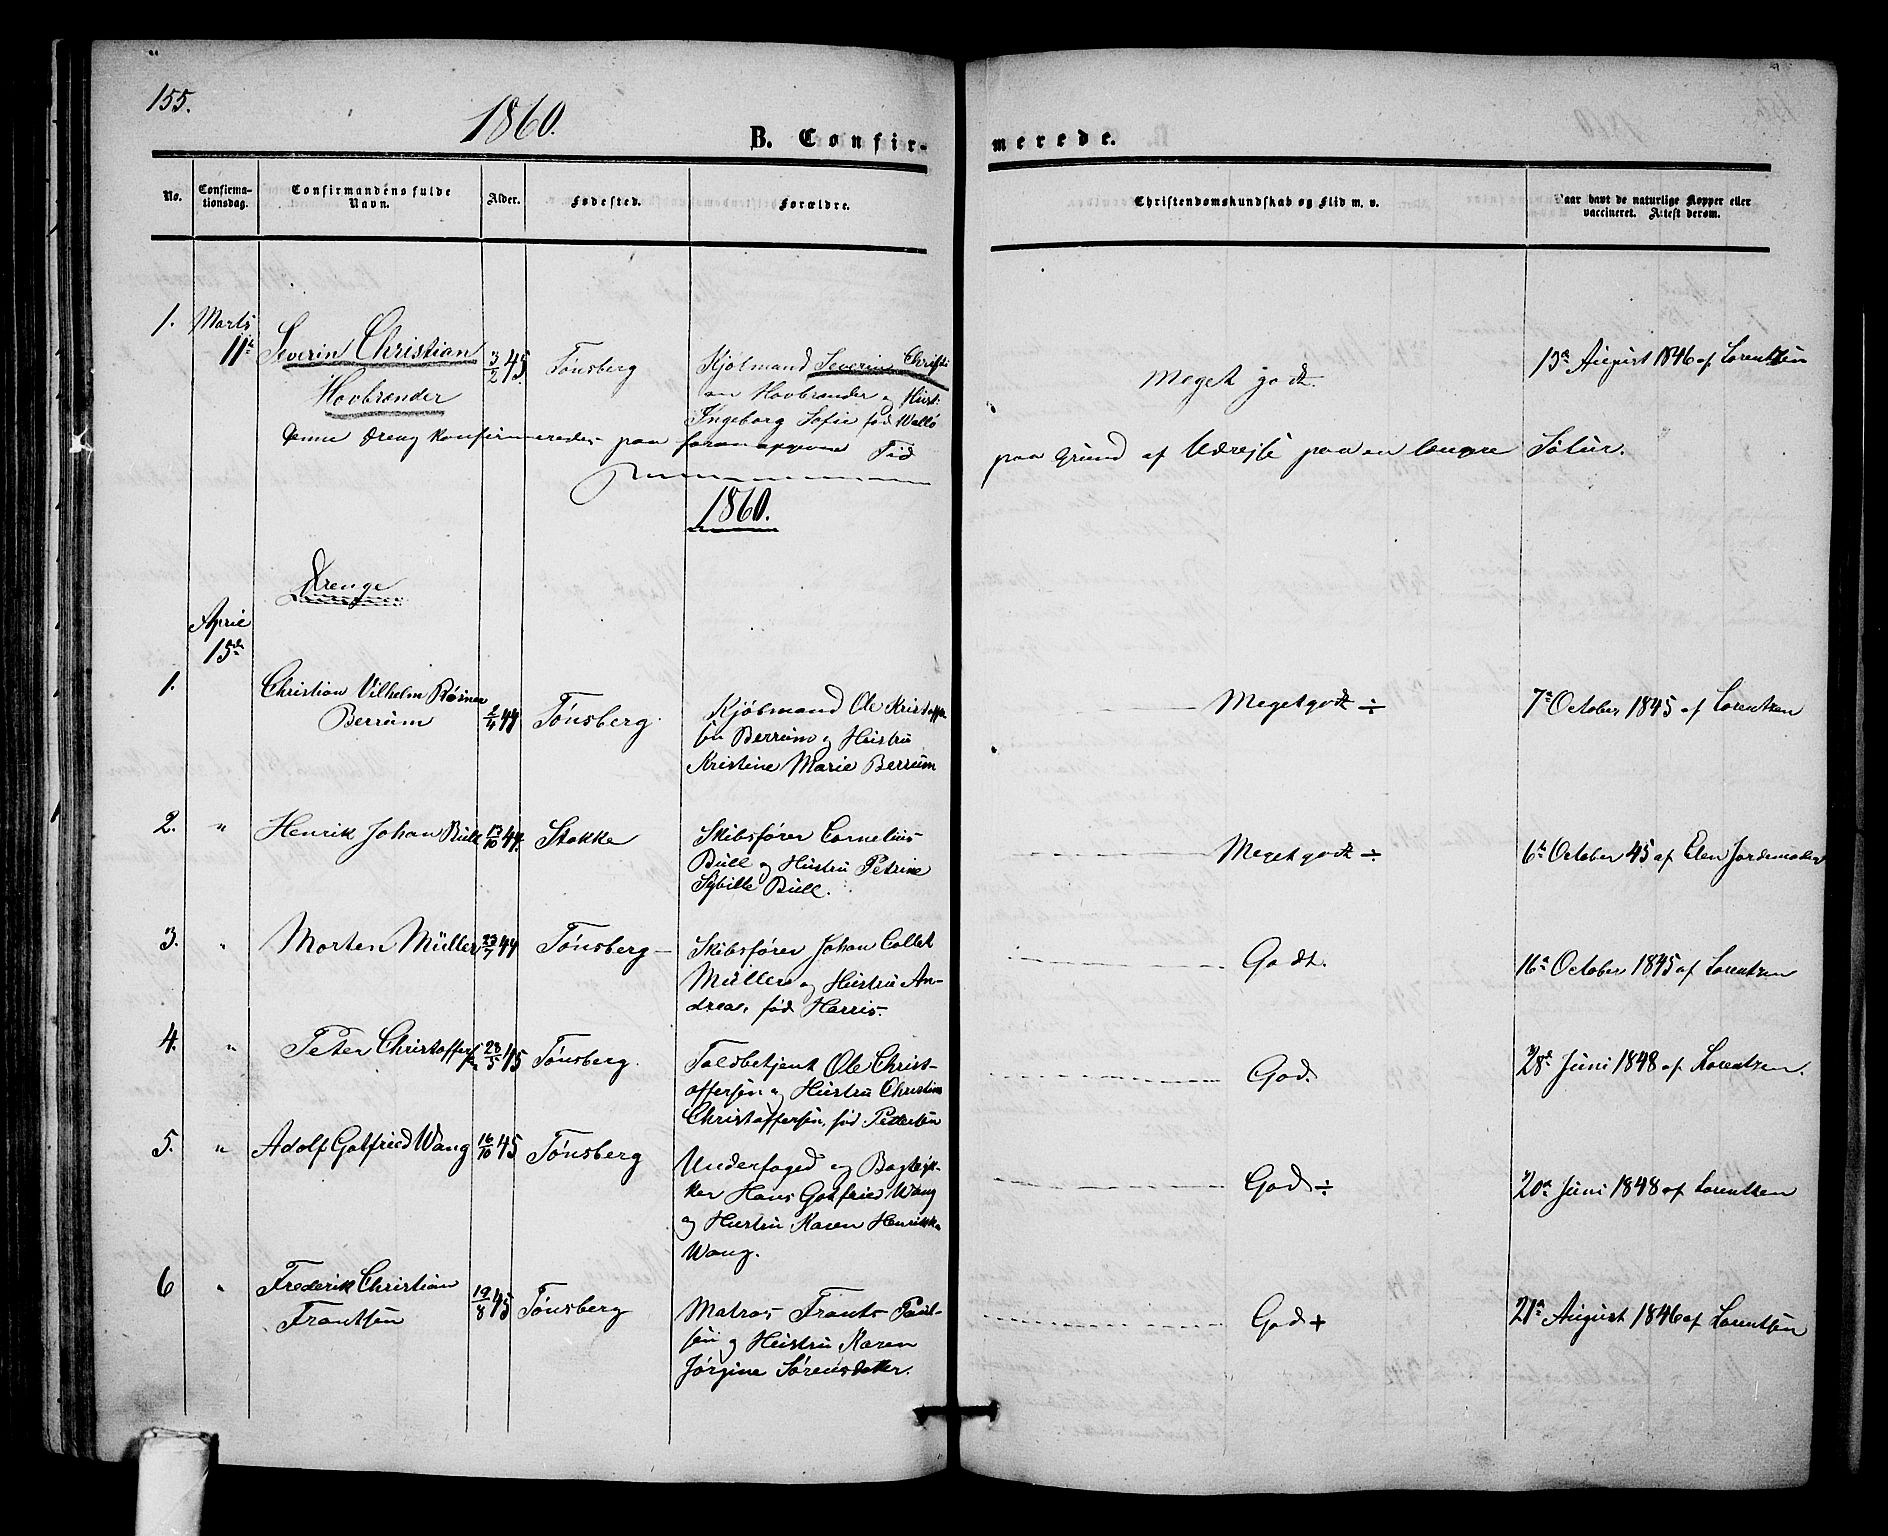 155.
1860.
B. Confirmerede.
No. Confirmationsdag. Confirmandens fulde Navn. Alder. Fødested. Forældre. Christendomskundskab og Flid m. v. Naar havt de naturlige Kopper eller vaccineret. Attest derom.
1. Marts 11te
Severin Christian Hovbrænder
3/2 45.
Tønsberg
Kjøbmand Severin Christi
an Hovbrænder og Hust.
Ingeborg Sofie fød Wallø
Meget godt.
13de August 1846 af Lorentzen
Denne Dreng konfirmeredes paa foranopgivne Tid paa Grund af Udreise paa en længere Søtur.
1860.
Drenge
April
15de
1.
Christian Vilhelm
Berrum
2/4 44
Tønsberg.
Kjøbmand Ole Kristoffer
sen Berrum og Hustru
Kristine Marie Berrum
Meget godt ÷
7de October 1845 af Lorentzen
2. "
Henrik Johan Bull
13/10 44.
Stokke
Skibsfører Cornelius
Bull og Hustru Petrine
Sybille Bull.
Meget godt ÷
6te October 45 af Elen Jordemoder
3. "
Morten Müller
23/7 44
Tønsberg
Skibsfører Johan Collet
Müller og Hustru An-
drea, fød Harris.
Godt.
16de October 1845 af Lorentzen
4. "
Peter Christoffersen
28/5 45
Tønsberg.
Toldbetjent Ole Christ-
offersen og Hustru Christine
Christoffersen, fød Pettersen
God.
28de Juni 1848 af Lorentzen.
5. "
Adolf Gotfried Wang
16/10 45
Tønsberg
Underfoged og Bogtryk-
ker Hans Gotfried Wang
og Hustru Karen Henrikke
Wang.
God ÷
20de Juni 1848 af Lorentzen
6 "
Frederik Christian
Frantsen
19/8 45
Tønsberg
Matros Frants Paul-
sen og Hustru Karen
Jørgine Sørensdatter.
God +
21de August 1846 af Lorentsen